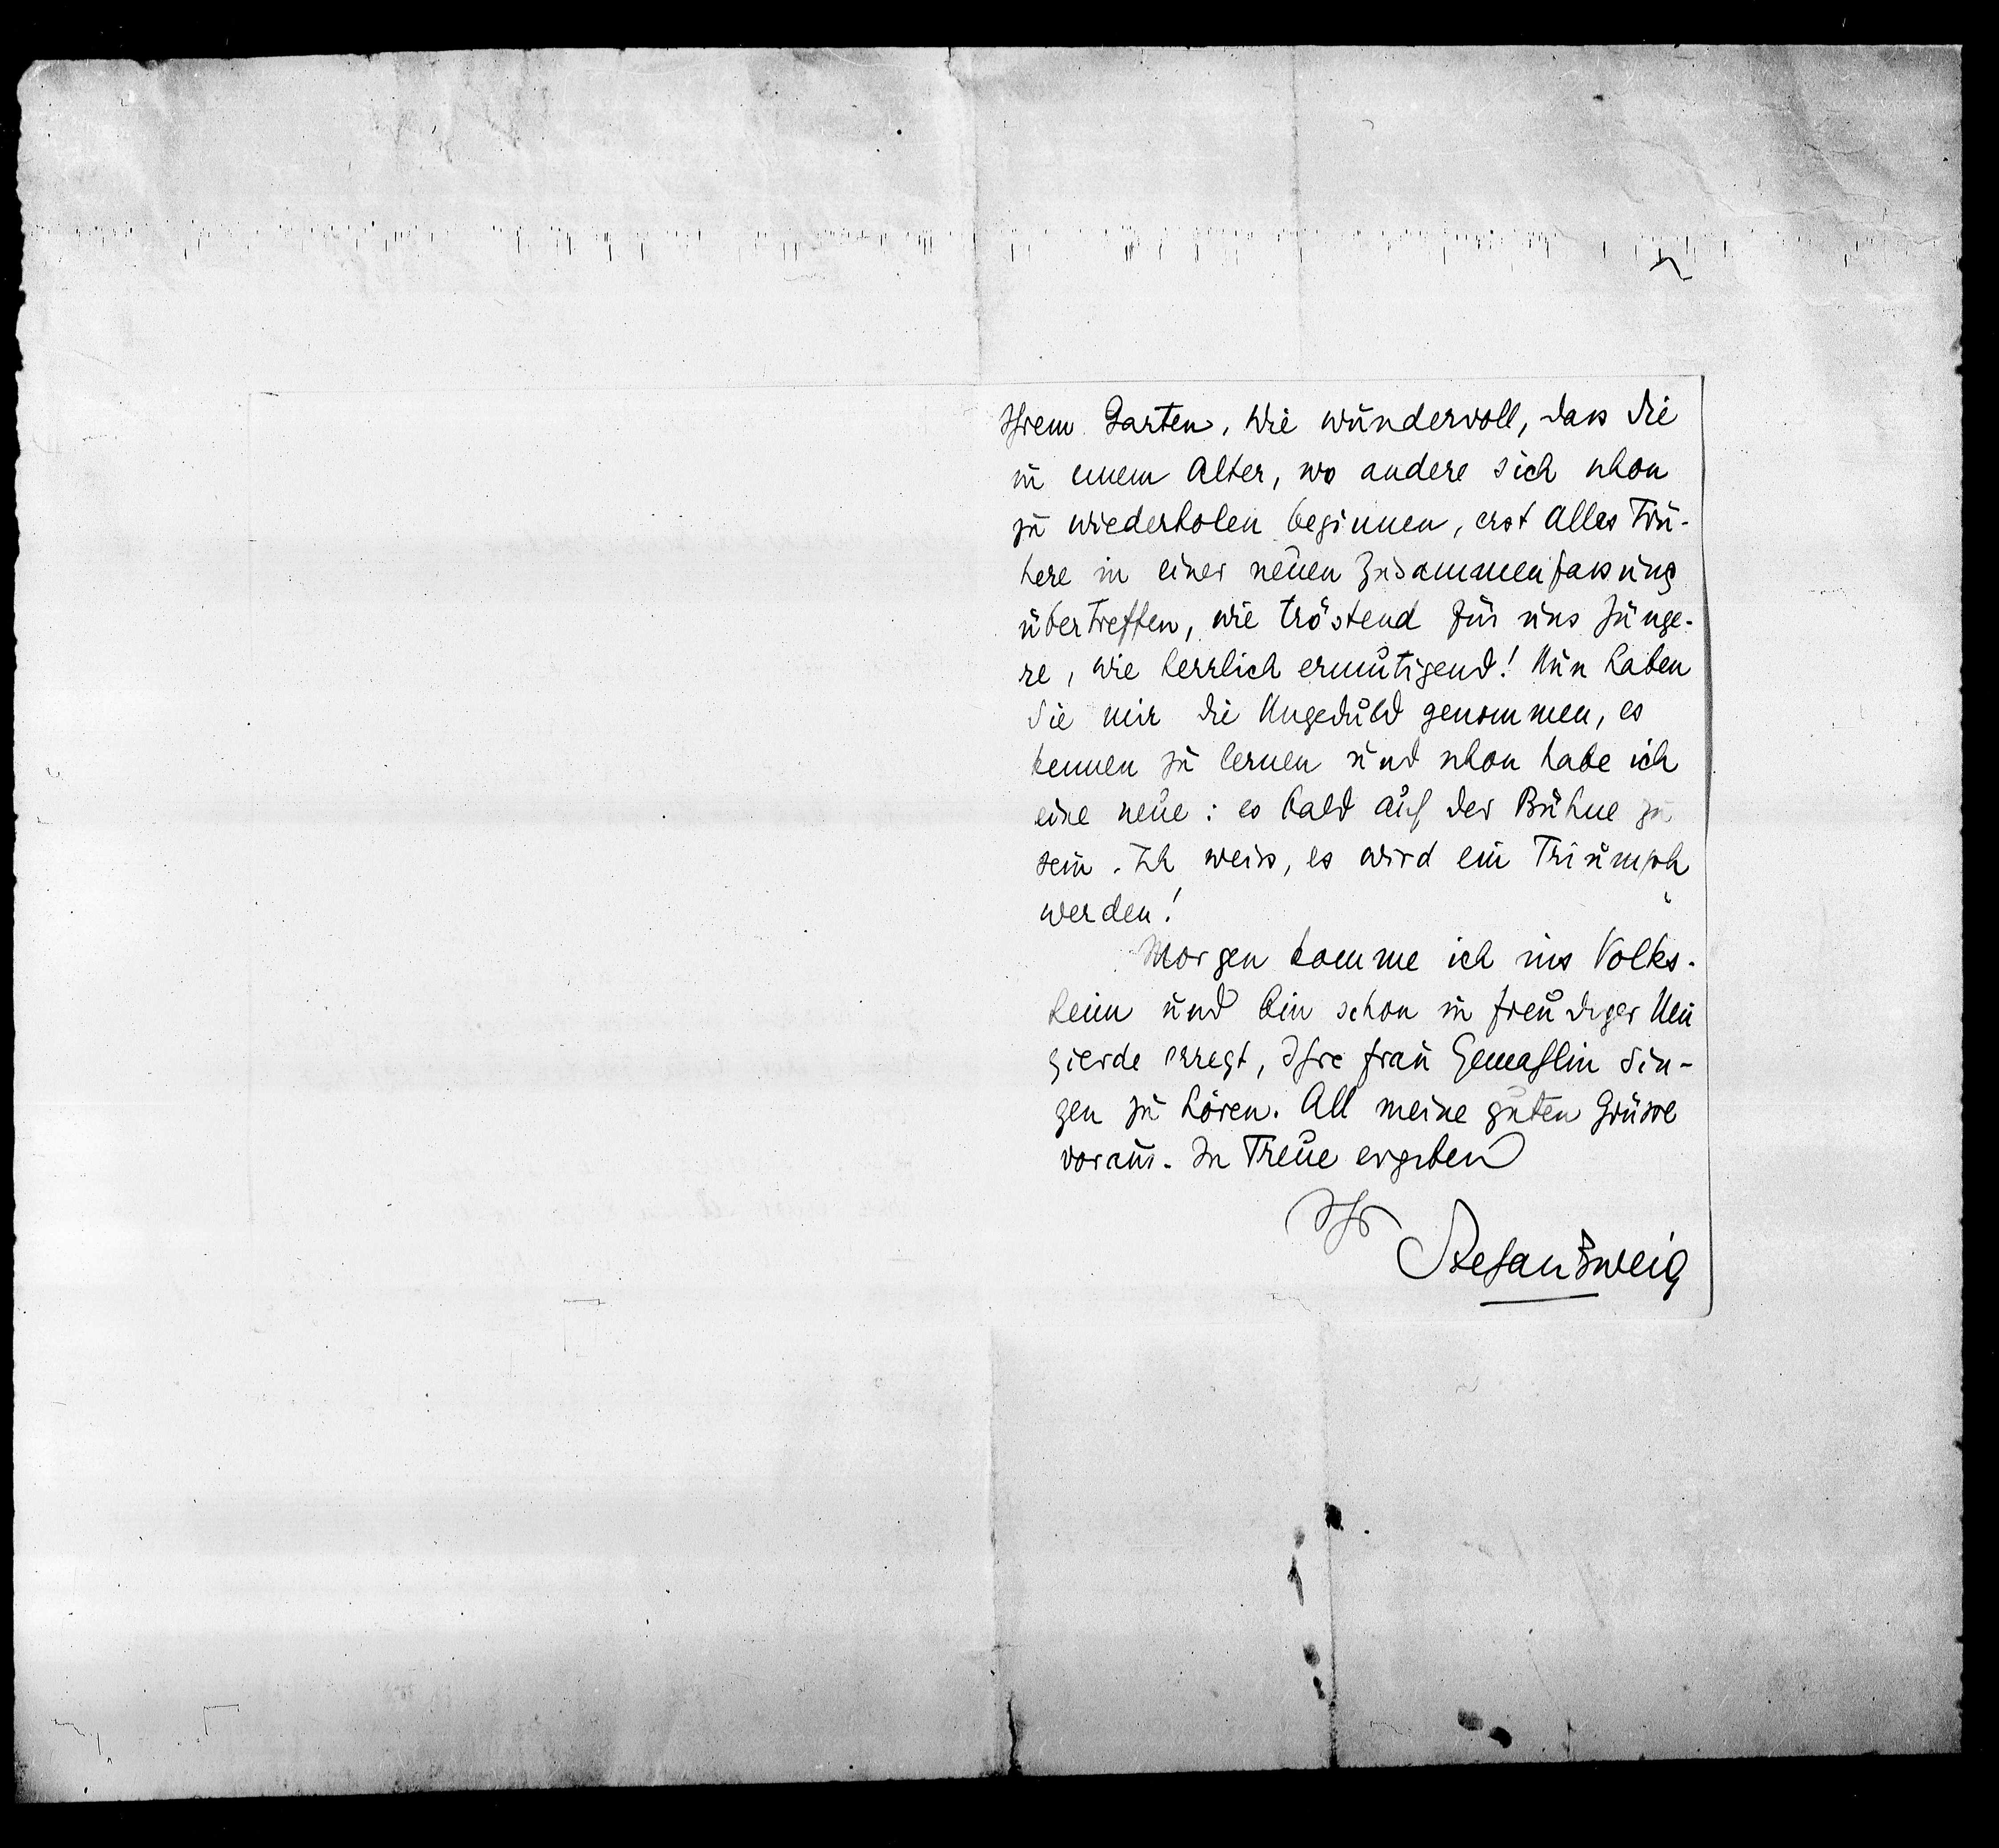 Ihrem Garten. Wie wundervoll, dass Sie
in einem Alter, wo andere sich schon
zu wiederholen beginnen, erst Alles Frü-
here in einer neuen Zusammenfassung
übertreffen, wie tröstend für uns Jünge-
re, wie herrlich ermutigend! Nun haben
Sie mir die Ungeduld genommen, es
kennen zu lernen und schon habe ich
eine neue: es bald auf der Bühne zu
sein. Ich weiss, es wird ein Triumph
werden!
Morgen komme ich ins Volks-
heim und bin schon in freudiger Neu
gierde erregt, Ihre Frau Gemahlin sin-
gen zu hören. All meine guten Grüsse
voraus. In Treue ergeben
Ihr
Stefan Zweig